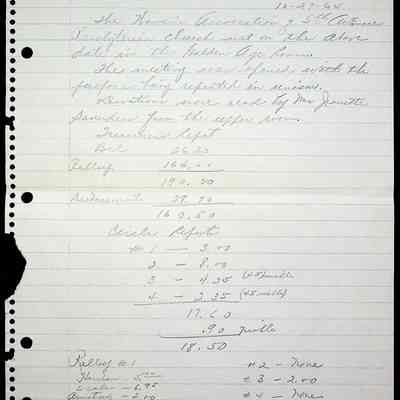 10-27-64
The Women's Association of 5th Avenue
Presbyterian Church met on the above
date in the Golden Age Room.
This meeting was opened with the
purpose being repeated in unison.
Devotions were read by Mrs Jeanette
Saunders from the upper room.
Treasurers Report
Bal 26.20
Rallies
190.20
Disbursements 29.70
160.50
Circles Report
# 1 — 3.00
2 — 8.00
3 — 4.25
4 — 2.35
17.60
.90
18.50
# 1 # 2 — None
5.00 # 3 — 2.00
6.95 # 4 — None
2.00